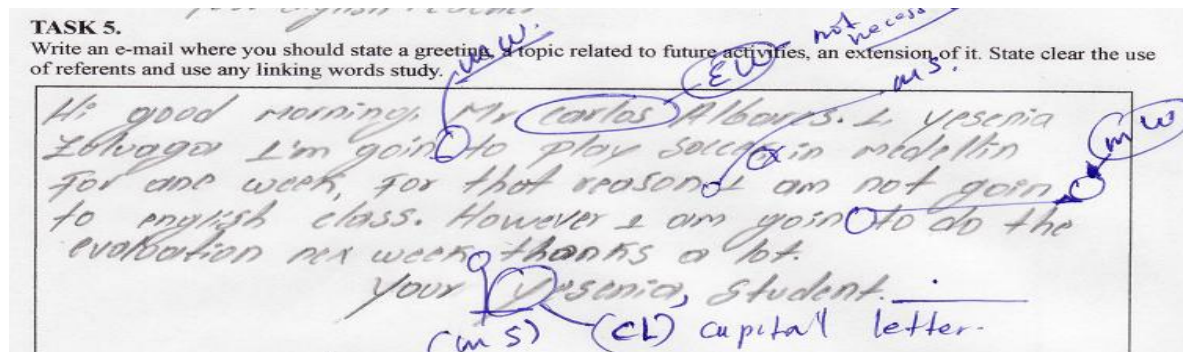 your english teacher
TASK 5.
Write an e-mail where you should state a greeting, a topic related to future activities, an extension of it. State clear the use
of referents and use any linking words study.
m.w.
EW
not necessa
m s.
Hi good morning, Mr carlos Albares. I, yesenia
I'm goin to play soccer in medellin
For one week, For that reason I am not goin
m w
to english class. However I am goin to do the
evaluation nex week thanks a lot.
Your yesenia, student.
(m s) (CL) capital letter.